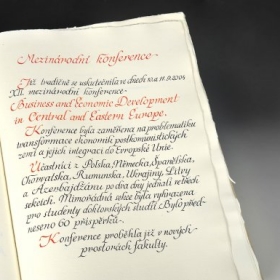 Mezinárodní konference
Již tradičně se uskutečnila ve dnech 10. a 11. 9. 2004
XII. mezinárodní konference
Business and Economic Development
in Central and Eastern Europe.
Konference byla zaměřena na problematiku
transformace ekonomik postkomunistických
zemí a jejich integraci do Evropské Unie.
Účastníci z Polska, Německa, Španělska,
Chorvatska, Rumunska, Ukrajiny, Litvy
a Azerbájdžánu po dva dny jednali v
sekcích. Mimořádná sekce byla vyhrazena
pro studenty doktorských studií. Bylo před-
neseno 60 příspěvků.
Konference proběhla již v nových
prostorách fakulty.